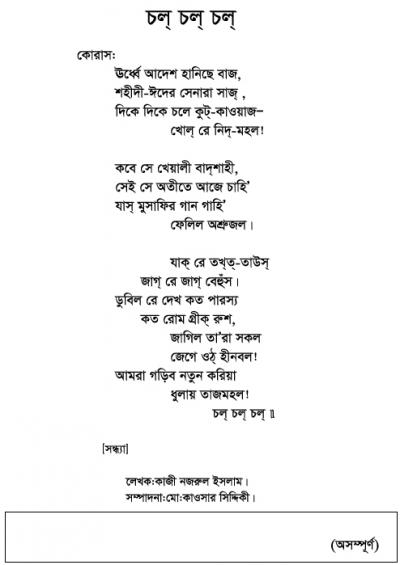 চল্ চল্ চল্
কোরাস:
ঊর্ধ্বে আদেশ হানিছে বাজ,
শহীদী-ঈদের সেনারা সাজ্ ,
দিকে দিকে চলে কুচ্-কাওয়াজ–
খোল্ রে নিদ্-মহল!
কবে সে খেয়ালী বাদ্শাহী,
সেই সে অতীতে আজো চাহি'
যাস্ মুসাফির গান গাহি'
ফেলিস্ অশ্রুজল।
যাক্ রে তখ্ত্-তাউস্
জাগ্ রে জাগ্ বেহুঁস।
ডুবিল রে দেখ কত পারস্য
কত রোম গ্রীক্ রুশ,
জাগিল তা'রা সকল
জেগে ওঠ্ হীনবল!
আমরা গড়িব নতুন করিয়া
ধুলায় তাজমহল!
চল্ চল্ চল্॥
[সন্ধ্যা]
লেখক:কাজী নজরুল ইসলাম।
সম্পাদনা:মো:কাওসার সিদ্দিকী।
(অসম্পূর্ণ)